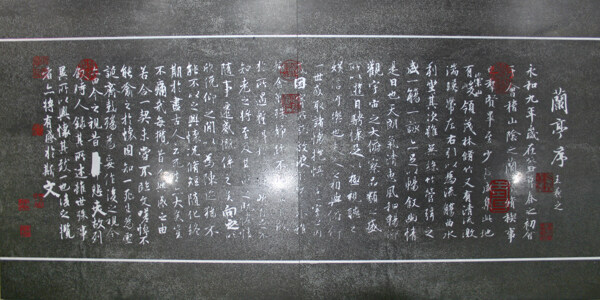 蘭亭序 王羲之
永和九年歲在癸丑暮春之初會
于會稽山陰之蘭亭脩稧事
也群賢畢至少長咸集此地
有峻領茂林脩竹又有清流激
湍暎帶左右引以為流觴曲水
列坐其次雖無絲竹管弦之
盛一觴一詠亦足以暢敘幽情
是日也天朗氣清惠風和暢仰
觀宇宙之大俯察品類之盛
所以遊目騁懷足以極視聽之
娛信可樂也夫人之相與俯仰
一世或取諸懷抱悟言一室之內
因寄所託放浪形骸之外雖
趣舍萬殊靜躁不同當其欣
於所遇暫得於己快然自足不
知老之將至及其所之既惓情
隨事遷感慨係之矣向之所
欣俛仰之間以為陳跡猶不
能不以之興懷況脩短隨化終
期於盡古人云死生亦大矣豈
不痛哉每攬昔人興感之由
若合一契未嘗不臨文嗟悼不
能喻之於懷固知一死生為虛
誕齊彭殤為妄作後之視今
亦由今之視昔悲夫故列
敘時人錄其所述雖世殊事
異所以興懷其致一也後之攬
者亦將有感於斯文